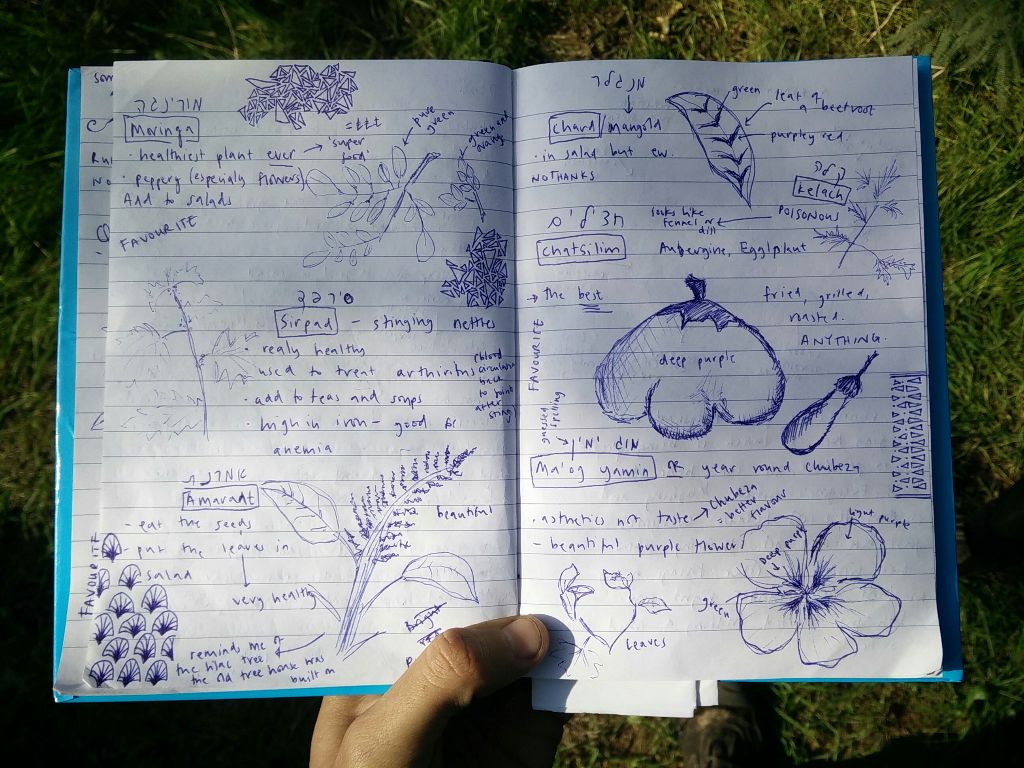 מורינגה
Moringa
• healthiest plant ever → 'super food'
• peppery (especialy flowers)
Add to salads
FAVOURITE
pure green
green and orange
סירפד
Sirpad – stinging nettles
• realy healthy
• used to treat arthiritus
blood circulates back to point after sting
• add to teas and soups
• high in iron – good for
anemia
Amarant
beautiful
- eat the seeds
- put the leaves in
salad
very healthy
FAVOURITE
reminds me of
the lilac tree
the old tree house was
built on
מנגלד
Chard / mangold
• in salad but ew.
NO THANKS
green
leaf of a beetroot
purpley red.
כלח
Kelach
POISONOUS
looks like fennel or dill
חצילים
Chatsilim
Aubergine, Eggplant
→ the best
FAVOURITE
deep purple
fried, grilled,
roasted.
ANYTHING.
guessed spelling
מוג ימין
Ma'og yamin OR year round chubeza
• asthetics not taste → Chubeza = better flavour
- beautiful purple flower
light purple
Deep purple
green
leaves